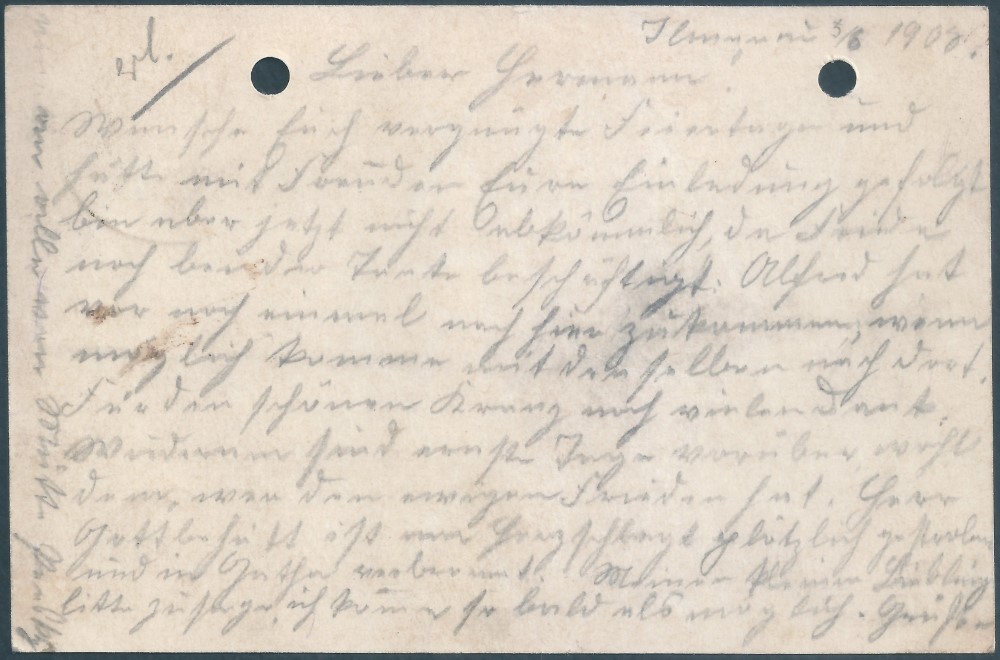 Ilmenau 3/6 1908.
erl.
Lieber Hermann.
Wünsche Euch vergnügte Feiertage und
hätte mit Freuden Eure Einladung gefolgt
bin aber jetzt nicht abkömmlich, da Frieda
noch bei der Tante beschäftigt. Alfred hat
vor noch einmal nach hier zu kommen, wenn
möglich komme mit denselben nach dort.
Für den schönen Kranz noch vielen Dank.
Wiederum sind ernste Tage vorüber, wohl
dem, wer den ewigen Frieden hat. Herr
Gottbehüt ist am Herzschlag plötzlich gestorben
und in Gotha verbrannt. Meinen kleinen Liebling
bitte zu sagen, ich komme so bald als möglich. Grüße